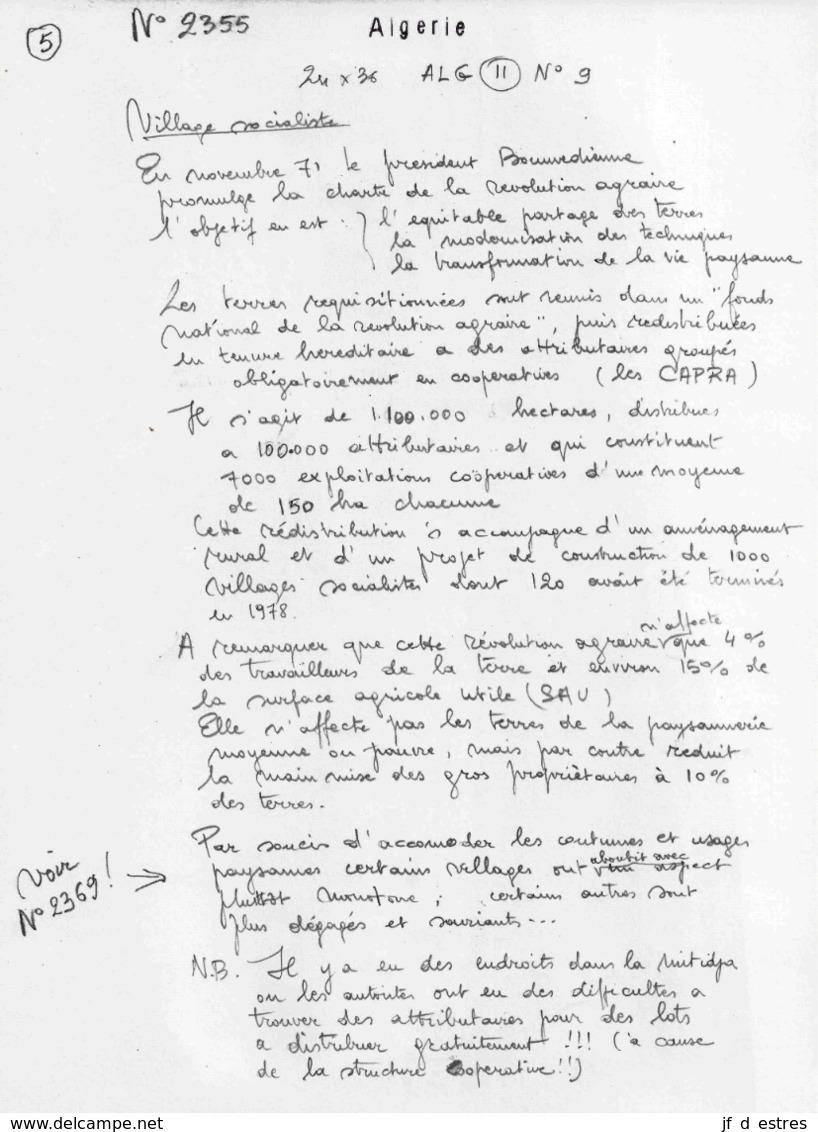 5
N° 2355
Algerie
24 x 36 ALG II N° 9
Village socialiste
En novembre 71 le president Boumedienne
promulge la charte de la revolution agraire
l'objetif en est : l'equitable partage des terres
la modernisation des techniques
la transformation de la vie paysanne
Les terres requisitionnées sont reunis dans un "fonds
national de la revolution agraire", puis redistribuées
en tenure hereditaire a des attributaires groupés
obligatoirement en cooperatives (les CAPRA)
Il s'agit de 1.100.000 hectares, distribues
a 100.000 attributaires et qui constituent
7000 exploitations coöperatives d'une moyenne
de 150 ha chacune
Cette rédistribution s'accompagne d'un aménagement
rural et d'un projet de construction de 1000
villages socialistes dont 120 avait été terminés
en 1978.
A remarquer que cette révolution agraire n'affecte que 4%
des travailleurs de la terre et environ 15% de
la surface agricole utile (SAU)
Elle n'affecte pas les terres de la paysannerie
moyenne ou pauvre, mais par contre reduit
la main mise des gros propriètaires à 10%
des terres.
Par soucis d'accomoder les coutumes et usages
paysannes certains villages ont aboutit avec un aspect
pluttôt monotone ; certains autres sont
plus dégagés et souriants...
voir
N° 2369!
N.B. Il y a eu des endroits dans la mitidja
ou les autorites ont eu des difficultes a
trouver des attributaires pour des lots
a distribuer gratuitement !!! (à cause
de la structure cooperative!!)
www.delcampe.net
jf d estres